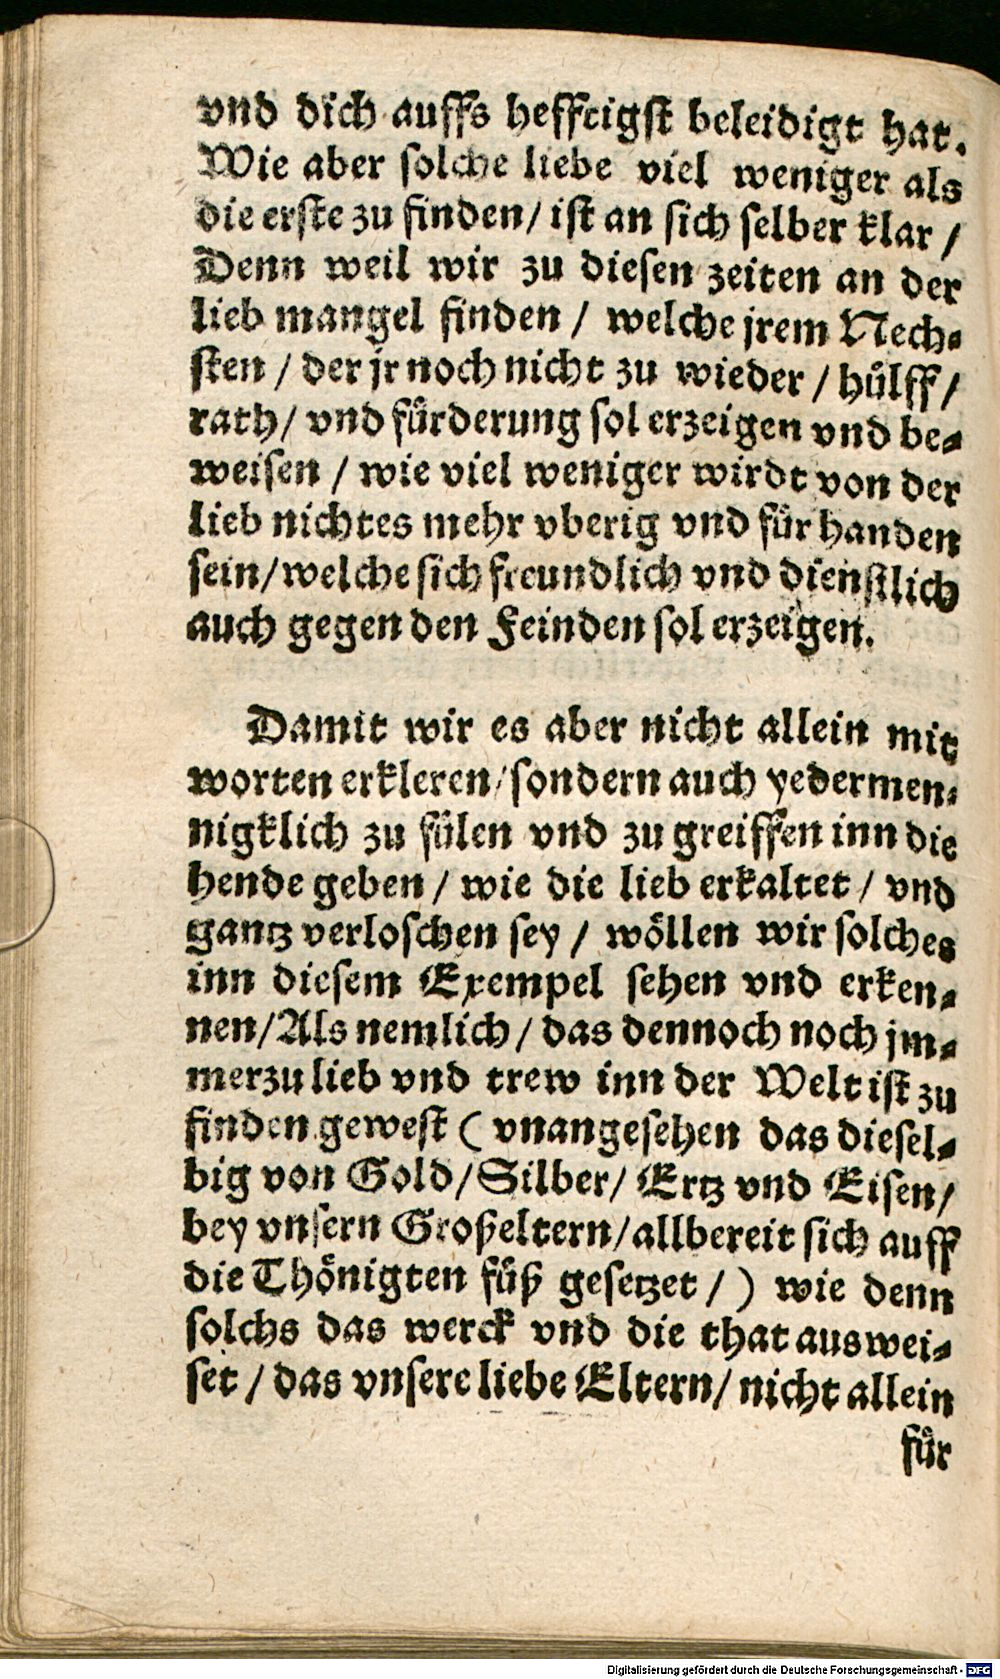 vnd dich auffs hefftigst beleidigt hat.
Wie aber solche liebe viel weniger als
die erste zu finden/ ist an sich selber klar /
Denn weil wir zu diesen zeiten an der
lieb mangel finden / welche jrem Nech-
sten / der jr noch nicht zu wieder / huͤlff /
rath / vnd fuͤrderung sol erzeigen vnd be-
weisen / wie viel weniger wirdt von der
lieb nichtes mehr vberig vnd fuͤr handen
sein/ welche sich freundlich vnd dienstlich
auch gegen den Feinden sol erzeigen.
Damit wir es aber nicht allein mit
worten erkleren/ sondern auch yedermen-
nigklich zu fuͤlen vnd zu greiffen inn die
hende geben / wie die lieb erkaltet / vnd
gantz verloschen sey / woͤllen wir solches
inn diesem Exempel sehen vnd erken-
nen/ Als nemlich / das dennoch noch jm-
merzu lieb vnd trew inn der Welt ist zu
finden gewest ( vnangesehen das diesel-
big von Gold/ Silber/ Ertz vnd Eisen/
bey vnsern Großeltern/ allbereit sich auff
die Thoͤnigten fuͤß gesetzet / ) wie denn
solchs das werck vnd die that auswei-
set / das vnsere liebe Eltern/ nicht allein
fuͤr
Digitalisierung gefördert durch die Deutsche Forschungsgemeinschaft - DFG